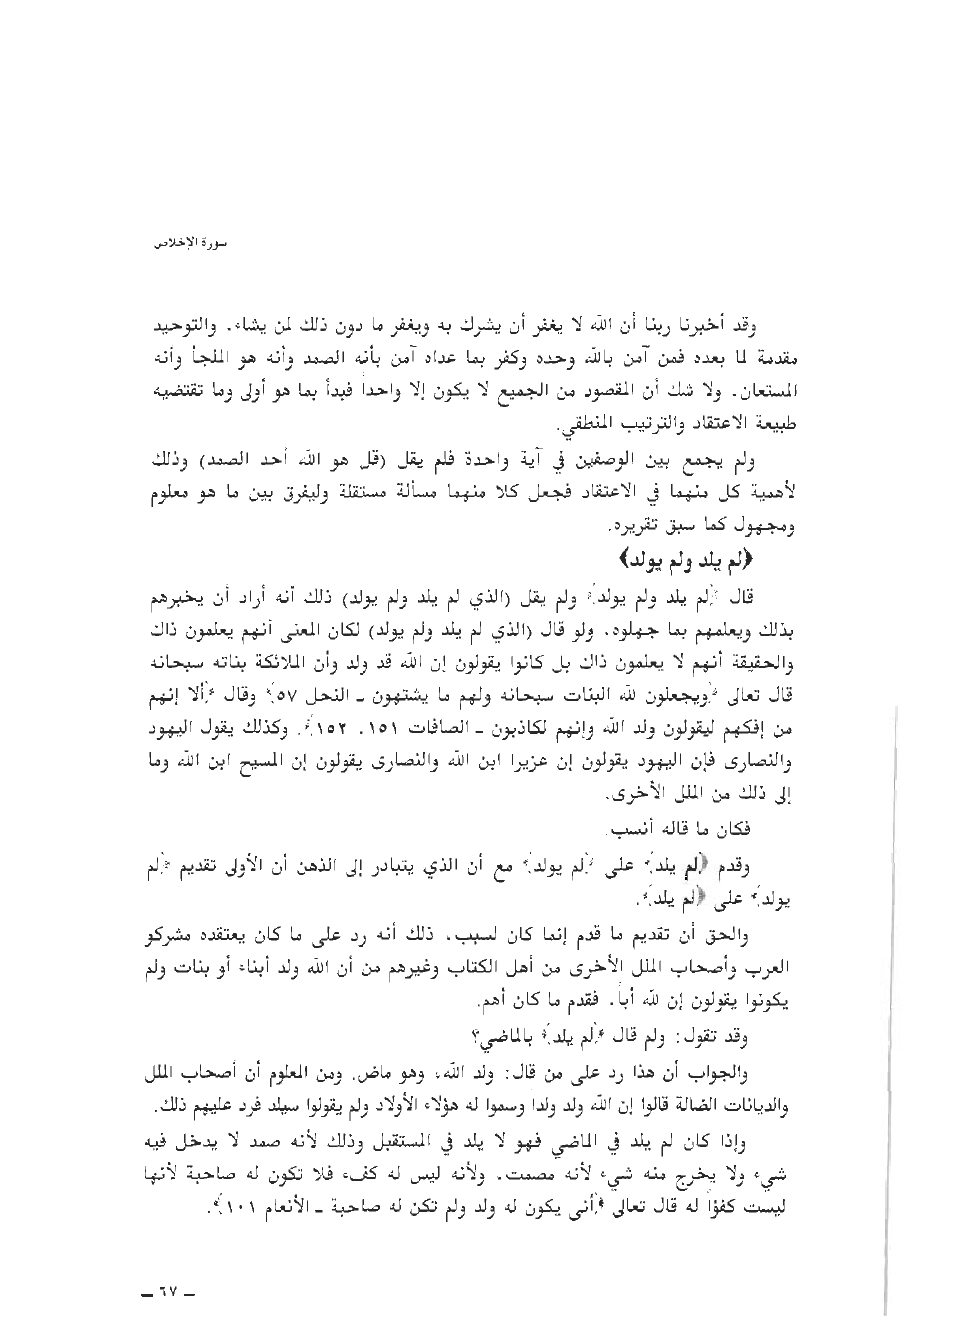 سورة الإخلاص
وقد أخبرنا ربنا أن الله لا يغفر أن يشرك به ويغفر ما دون ذلك لمن يشاء. والتوحيد
مقدمة لما بعده فمن آمن بالله وحده وكفر بما عداه آمن بأنه الصمد وأنه هو الملجأ وأنه
المستعان. ولا شك أن المقصود من الجميع لا يكون إلا واحداً فبدأ بما هو أولى وما تقتضيه
طبيعة الاعتقاد والترتيب المنطقي.
ولم يجمع بين الوصفين في آية واحدة فلم يقل (قل هو الله أحد الصمد) وذلك
لأهمية كل منهما في الاعتقاد فجعل كلا منهما مسألة مستقلة وليفرق بين ما هو معلوم
ومجهول كما سبق تقريره.
﴿لم يلد ولم يولد﴾
قال ﴿لم يلد ولم يولد﴾ ولم يقل (الذي لم يلد ولم يولد) ذلك أنه أراد أن يخبرهم
بذلك ويعلمهم بما جهلوه. ولو قال (الذي لم يلد ولم يولد) لكان المعنى أنهم يعلمون ذاك
والحقيقة أنهم لا يعلمون ذاك بل كانوا يقولون إن الله قد ولد وأن الملائكة بناته سبحانه
قال تعالى ﴿ويجعلون لله البنات سبحانه ولهم ما يشتهون ـ النحل ٥٧﴾ وقال ﴿ألا إنهم
من إفكهم ليقولون ولد الله وإنهم لكاذبون ـ الصافات ١٥١، ١٥٢﴾. وكذلك يقول اليهود
والنصارى فإن اليهود يقولون إن عزيرا ابن الله والنصارى يقولون إن المسيح ابن الله وما
إلى ذلك من الملل الأخرى.
فكان ما قاله أنسب.
وقدم ﴿لم يلد﴾ على ﴿لم يولد﴾ مع أن الذي يتبادر إلى الذهن أن الأولى تقديم ﴿لم
يولد﴾ على ﴿لم يلد﴾.
والحق أن تقديم ما قدم إنما كان لسبب، ذلك أنه رد على ما كان يعتقده مشركو
العرب وأصحاب الملل الأخرى من أهل الكتاب وغيرهم من أن الله ولد أبناء أو بنات ولم
يكونوا يقولون إن لله أباً. فقدم ما كان أهم.
وقد تقول: ولم قال ﴿لم يلد﴾ بالماضي؟
والجواب أن هذا رد على من قال: ولد الله، وهو ماض. ومن المعلوم أن أصحاب الملل
والديانات الضالة قالوا إن الله ولد ولدا وسموا له هؤلاء الأولاد ولم يقولوا سيلد فرد عليهم ذلك.
وإذا كان لم يلد في الماضي فهو لا يلد في المستقبل وذلك لأنه صمد لا يدخل فيه
شيء ولا يخرج منه شيء لأنه مصمت. ولأنه ليس له كفء فلا تكون له صاحبة لأنها
ليست كفؤاً له قال تعالى ﴿أنى يكون له ولد ولم تكن له صاحبة ـ الأنعام ١٠١﴾.
ـ ٦٧ ـ